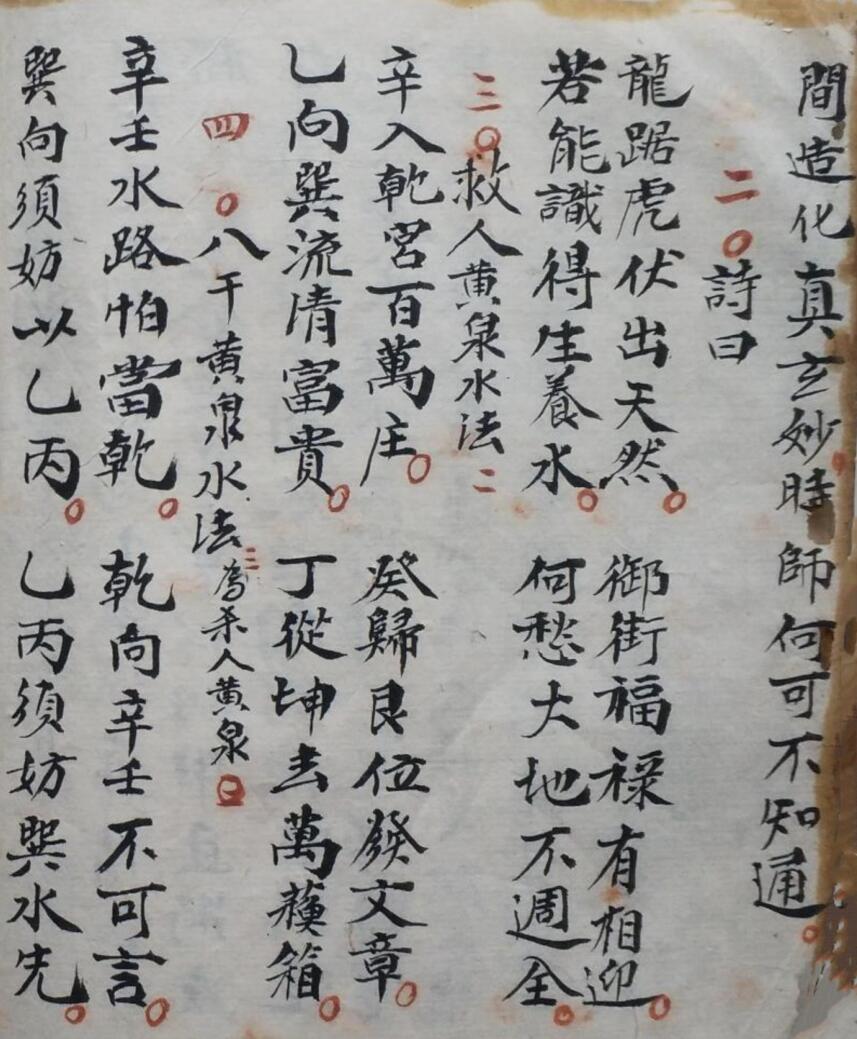 間造化真玄妙時師何可不知通。
二○詩曰
龍踞虎伏出天然。御街福祿有相迎。
若能識得生養水。何愁大地不週全。
三○救人黄泉水法二
辛入乾宮百萬庄。癸歸艮位發文章。
乙向巽流清富貴。丁從坤去萬箱。
四○八干黄泉水法三為杀人黄泉
辛壬水路怕當乾。乾向辛壬不可言。
巽向須妨以乙丙。乙丙須妨巽水先。